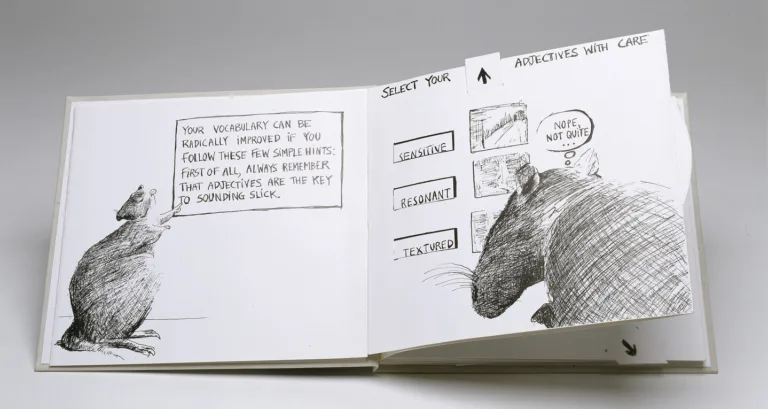 YOUR VOCABULARY CAN BE
RADICALLY IMPROVED IF YOU
FOLLOW THESE FEW SIMPLE HINTS:
FIRST OF ALL, ALWAYS REMEMBER
THAT ADJECTIVES ARE THE KEY
TO SOUNDING SLICK.
SELECT YOUR ADJECTIVES WITH CARE
SENSITIVE
RESONANT
TEXTURED
NOPE,
NOT QUITE
...